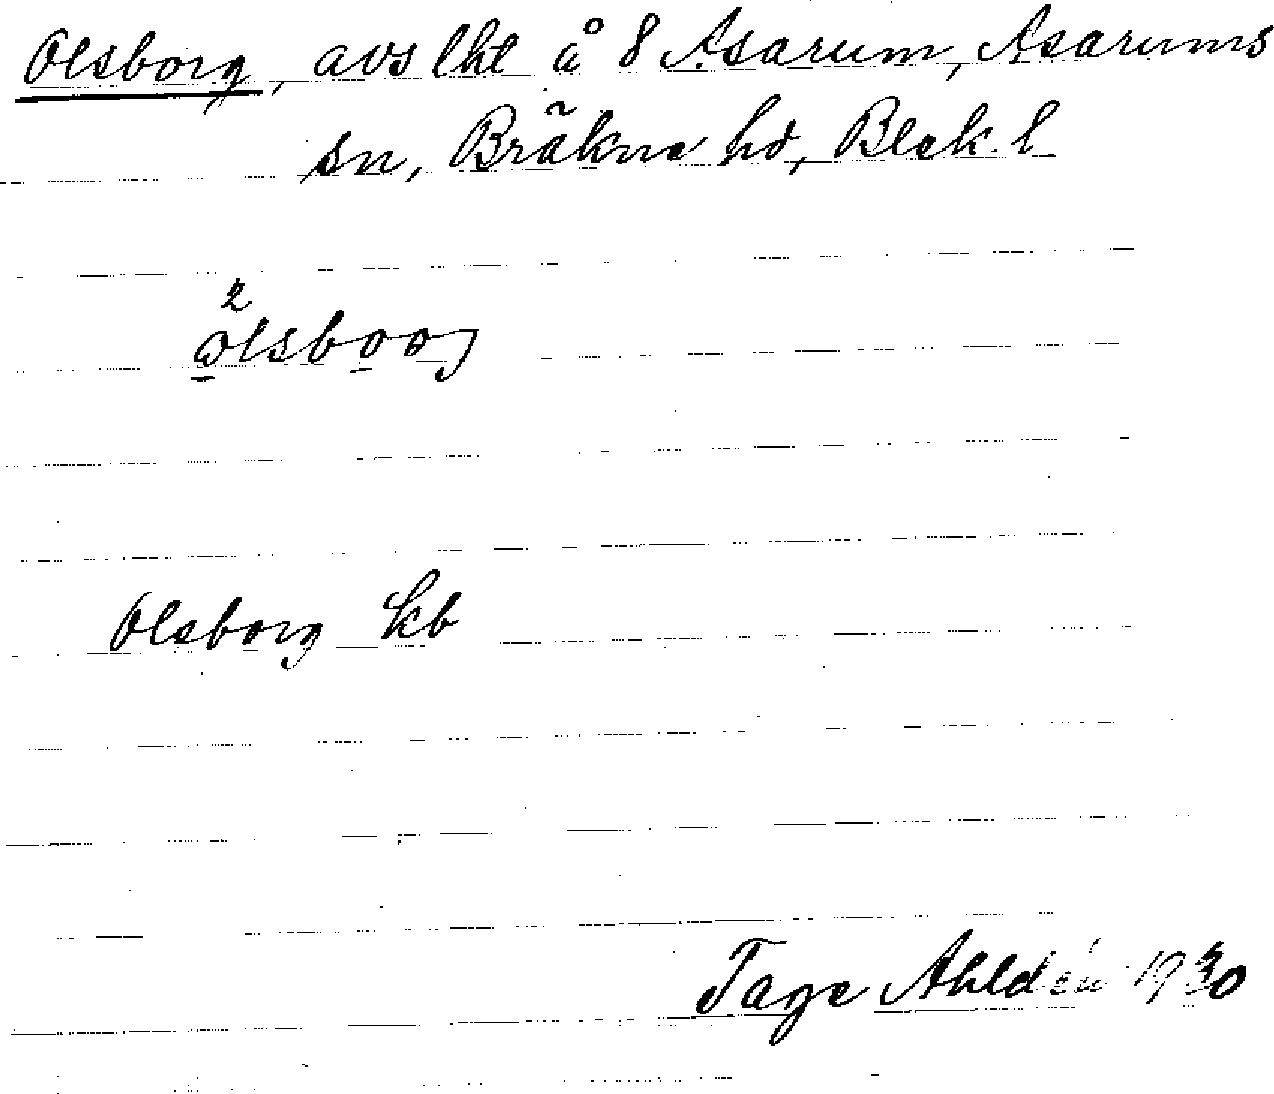 Olsborg, avs lht å 8 Asarum, Asarums
sn, Bräkne hd, Blek. l
Olsborg kb
Tage Ahldén 1930